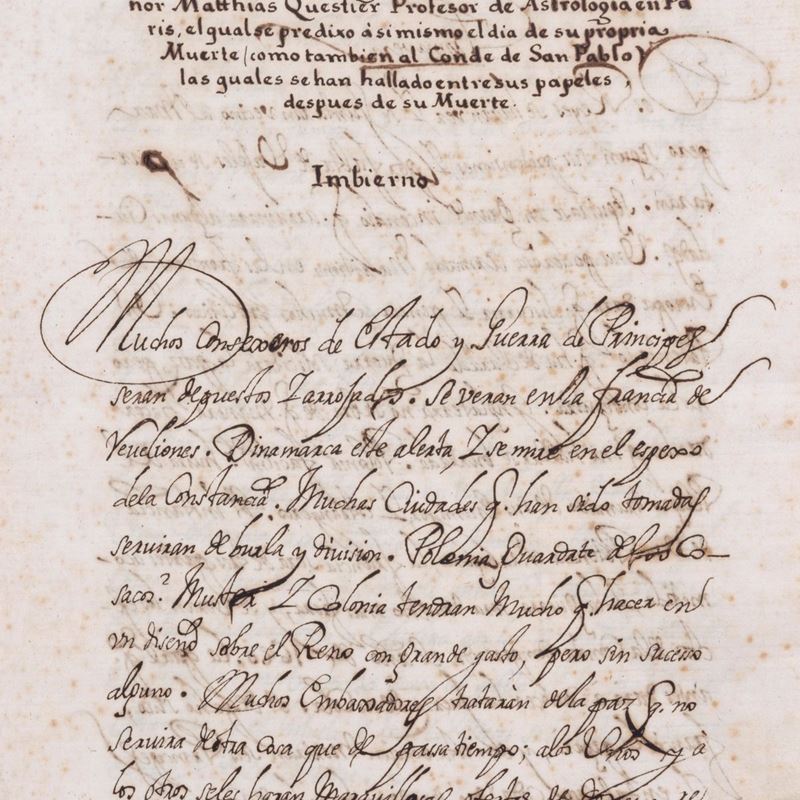 nor Matthias Questier Profesor de Astrologia en Pa
ris, el qual se predixo à si mismo el dia de su propria
Muerte (como tambien al Conde de San Pablo)
las quales se han hallado entre sus papeles,
despues de su Muerte.
Imbierno
Muchos Consexeros de Estado y Guerra de Principes
seran depuestos Z arrojados. se veran en la francia
Dinamarca este alerta, Z se mire en el espexo
dela Constancia. Muchas Ciudades q. han sido tomadas
serviran de burla y division. Polonia Guardate delos Co-
sacos? Z Colonia tendran Mucho q. hacer en
vn diseño sobre el Reno con grande gasto, pero sin sucesso
alguno. Muchos Embaxadores trataràn dela paz q. no
servira de otra cosa que de passatiempo; alos Unos y à
los otros seles haran Maravillosas ofertas de